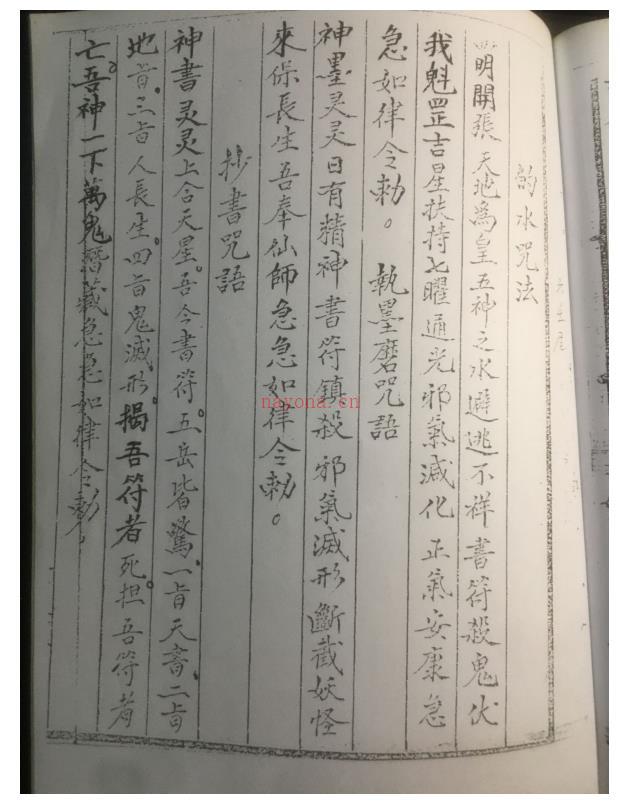 水咒法
明開張天地為皇五神之水避逃不祥書符殺鬼伏
我魁罡吉星扶持七曜通光邪氣滅化正氣安康急
急如律令勅。 執墨磨咒語
神墨灵灵日有精神書符鎮殺邪氣滅形斷截妖怪
來保長生吾奉仙師急急如律令勅。
抄書咒語
神書灵灵上合天星。吾今書符。五岳皆驚、一旨天斎、二旨
地旨、三旨人長生。四旨鬼滅形。揭吾符者死。担吾符者
亡。吾神一下萬鬼潛藏急急如律令勅
nayona.cn